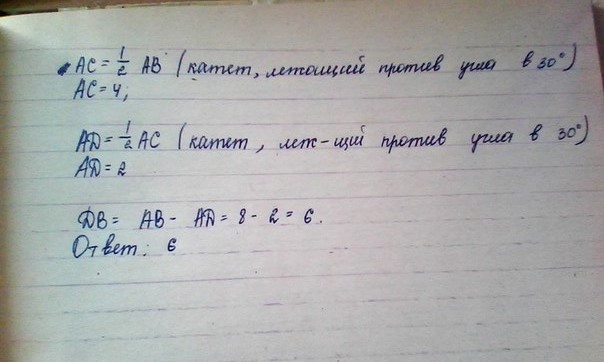 AC = 1/2 AB (катет, лежащий против угла в 30°)
AC = 4;
AD = 1/2 AC (катет, леж-щий против угла в 30°)
AD = 2
DB = AB - AD = 8 - 2 = 6.
Ответ: 6